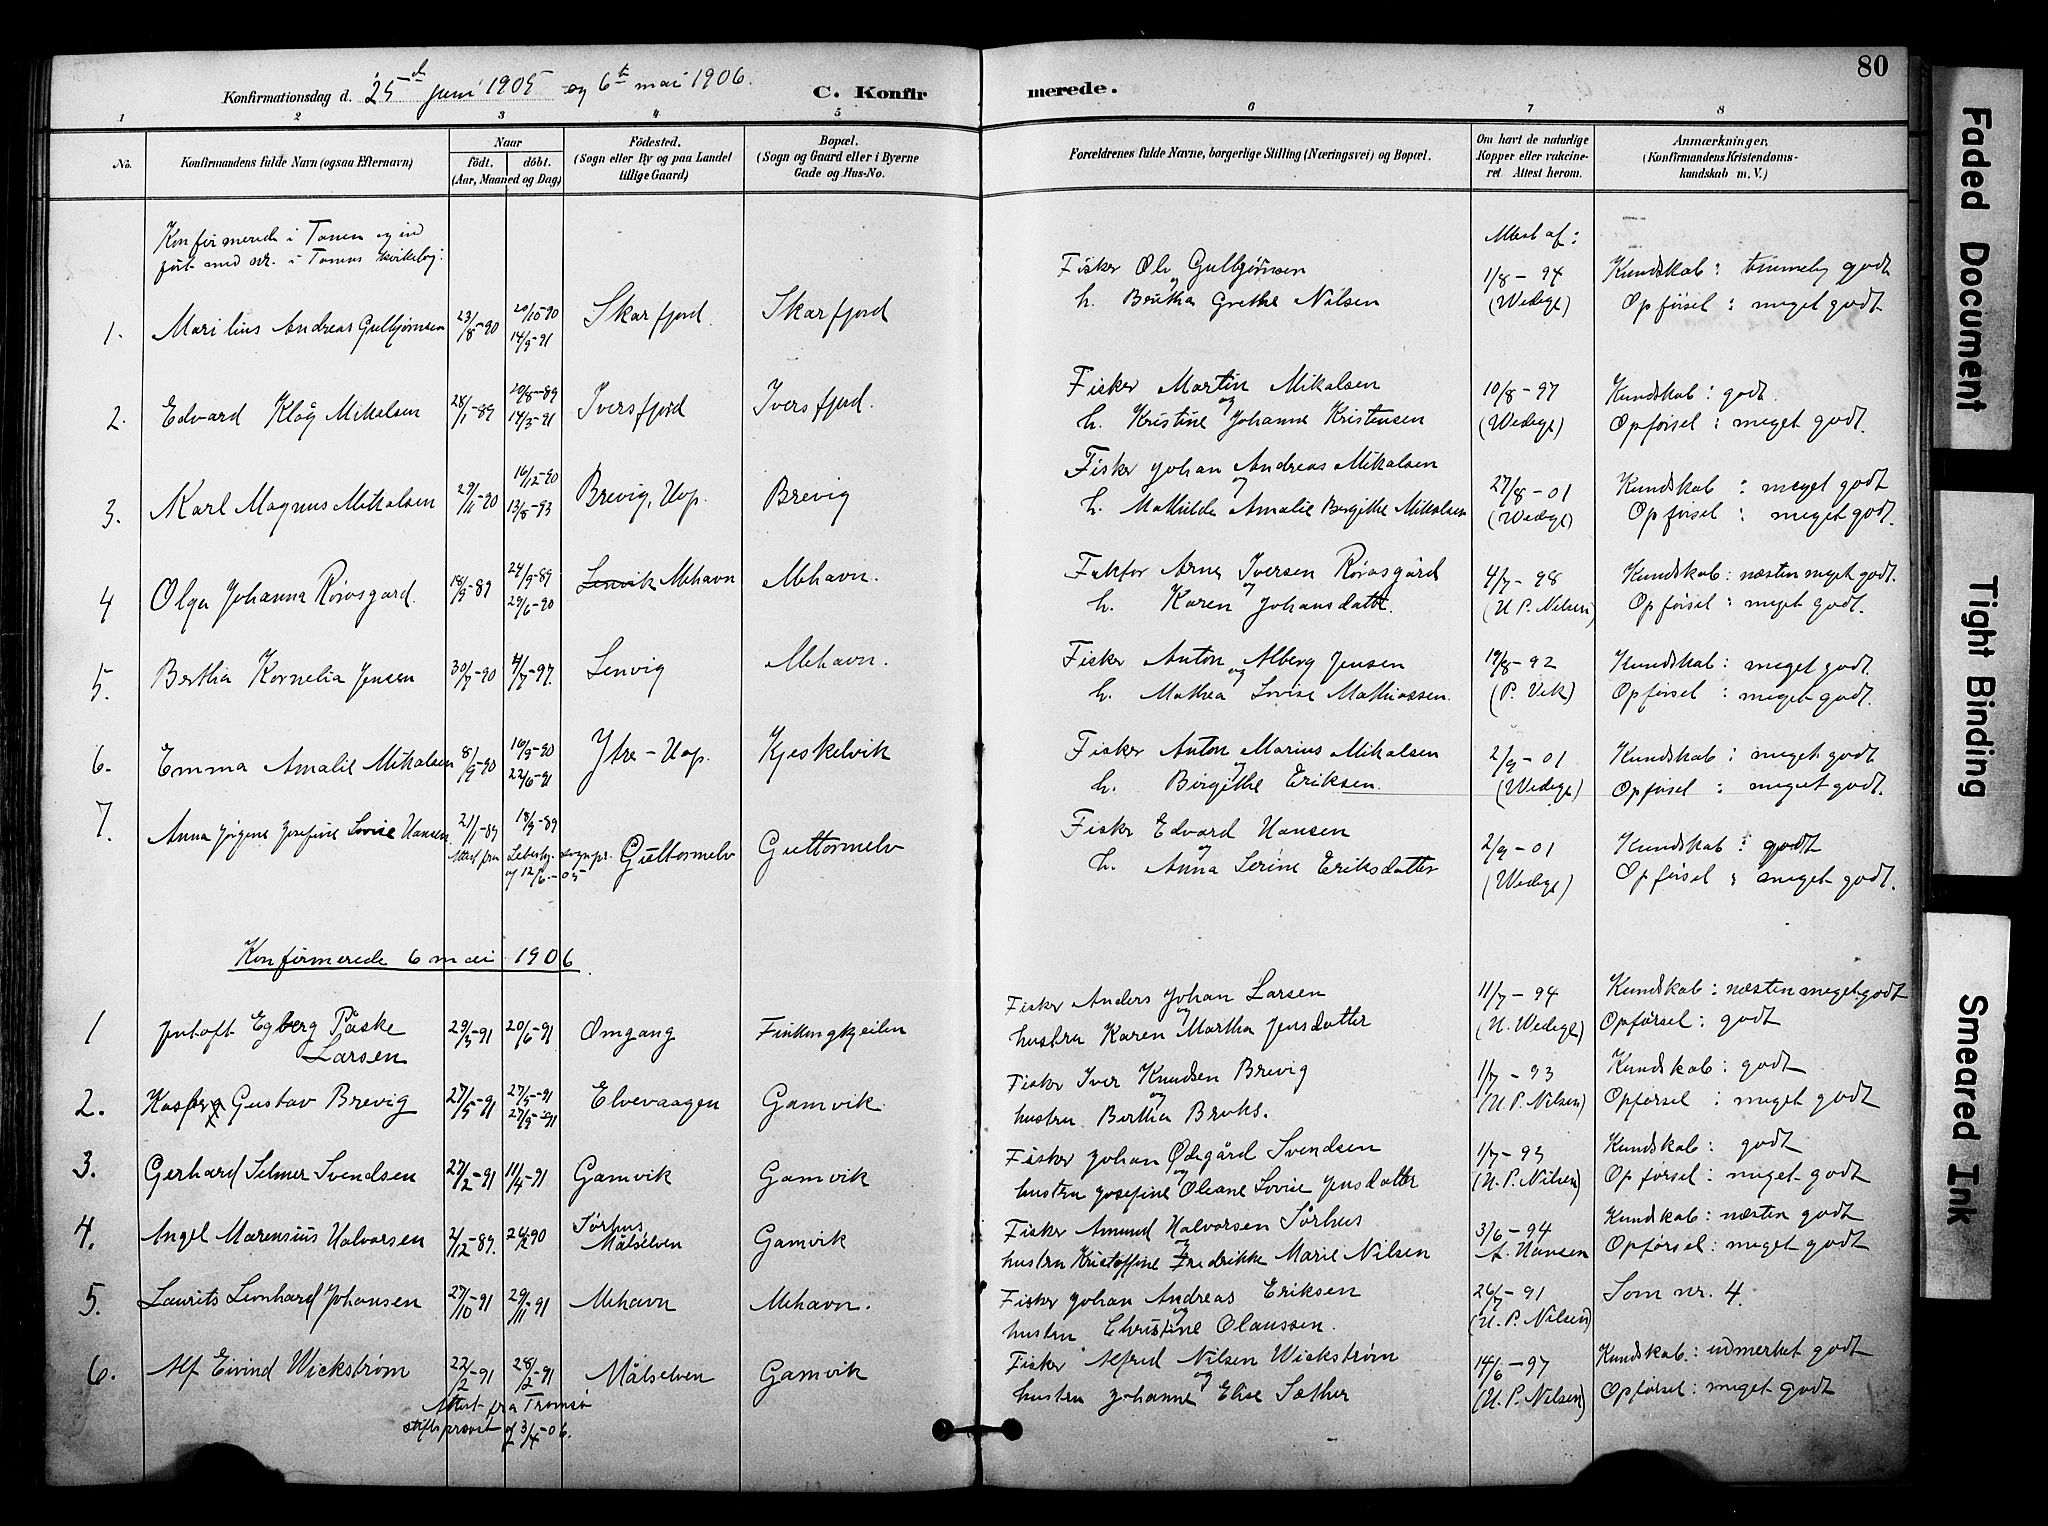 80
Konfirmationsdag d. 25de juni 1905 og 6te mai 1906.
C. Konfirmerede.
1 2 3 4 5 6 7 8
No.
Konfirmandens fulde Navn (ogsaa Efternavn)
Naar
födt. döbt.
(Aar, Maaned og Dag)
Födested.
(Sogn eller By og paa Landet
tillige Gaard)
Bopæl.
(Sogn og Gaard eller i Byerne
Gade og Hus-No.
Forældrenes fulde Navne, borgerlige Stilling (Næringsvei) og Bopæl.
Om havt de naturlige
Kopper eller vakcine-
ret Attest herom.
Anmærkninger.
(Konfirmandens Kristendoms-
kundskab m. V.)
Konfirmerede i Tanen og ind
ført med nr. i Tanens kirkebog:
Attest af:
1. Marilius Andreas Gulbjørnsen 23/8-90 20/10-90 14/9-91 Skarfjord. Skarfjord
Fisker Ole Gulbjørnsen 1/8-94 Kundskab: temmelig godt
og
h. Bertha Grethe Nilsen (Wedege) Opførsel: meget godt
2. Edvard Kløg Mikalsen 28/1-89 20/8-89 14/3-91 Iversfjord Iversfjord.
Fisker Martin Mikalsen 10/8-97 Kundskab: godt.
og
h. Kristine Johanne Kristensen (Wedege) Opførsel: meget godt.
3. Karl Magnus Mikalsen 29/11-90 16/12-90 13/8-93 Brevig, Hop. Brevig
Fisker Johan Andreas Mikalsen 27/8-01 Kundskab: meget godt
og
h. Mathilde Amalie Bergithe Mikalsen (Wedege) Opførsel: meget godt.
4 Olga Johanna Rørosgard. 18/9-89 24/9-89 29/6-90 Lenvik Mehavn Mehavn.
Faktor Arne Iversen Rørosgård 4/7-98 Kundskab: næsten meget godt.
og
h. Karen Johansdatter. (U P. Nilsen) Opførsel: meget godt.
5. Bertha Kornelia Jensen 30/7-90 4/7-97. Lenvig Mehavn.
Fisker Anton Alberg Jensen 19/8-92 Kundskab: meget godt.
og
h. Mathea Lovise Mathiassen. (P. Vek) Opførsel: meget godt.
6. Emma Amalie Mikalsen 8/9-90 16/9-90 22/6-91 Ytre-Hop. Kjeskelvik
Fisker Anton Marius Mikalsen 2/9-01 Kundskab: meget godt
og
h. Birgithe Eriksen. (Wedege) Opførsel: meget godt.
7. Anna Jørgine Josefine Lovise Hansen. 21/1-89 18/3-89 Guttormelv Guttormelv
Attest fra Lebesby sognpr.
og 12/6-05
Fisker Edvard Hansen 2/9-01 Kundskab: godt
og
h. Anna Serine Eriksdatter (Wedege) Opførsel: meget godt.
Konfirmerede 6 mai 1906.
1 Jentoft Egberg Paaske 29/3-91 20/6-91 Omgang Finkongkjeilen
Larsen
Fisker Anders Johan Larsen 11/7-94 Kundskab: næsten meget godt
og
hustru Karen Martha Jensdatter (U. Wedege) Opførsel: godt
2. Kasper Gustav Brevig 27/5-91 27/5-91 27/9-91 Elvevaagen Gamvik.
Fisker Iver Knudsen Brevig 1/7-93 Kundskab: godt
og
hustru Bertha Broks. (U P. Nilsen) Opførsel: meget godt
3. Gerhard Selmer Svendsen 27/2-91 11/4-91 Gamvik Gamvik
Fisker Johan Ødegård Svendsen 1/7-93 Kundskab: godt
og
hustru Josefine Oleane Lovise Jensdatter (U. P. Nilsen) Opførsel: meget godt
4. Angel Marensius Halvorsen 2/12-89. 26/2 90 Sørhus Målselven Gamvik
Fisker Amund Halvorsen Sørhus 3/6-94 Kundskab: næsten godt
og
hustru Kristoffine Fredrikke Marie Nilsen A. Hansen Opførsel: meget godt
5. Laurits Leonhard Johansen 27/10-91 29/11-91 Mehavn Mehavn.
Fisker Johan Andreas Eriksen 26/7-91 Som nr. 4.
og
hustru Christine Olaussen. (U. P. Nilsen)
6. Alf Eivind Wickstrøm 22/2-91 28/2-91 Målselven Gamvik
Attest fra Tromsø
stiftsprovst af 3/4-06.
Fisker Alfred Nilsen Wickstrøm 14/6-97 Kundskab: udmerket godt
og
hustru Johanne Elise Sæther (U. P. Nilsen) Opførsel: meget godt
Faded Document
Tight Binding
Smeared Ink